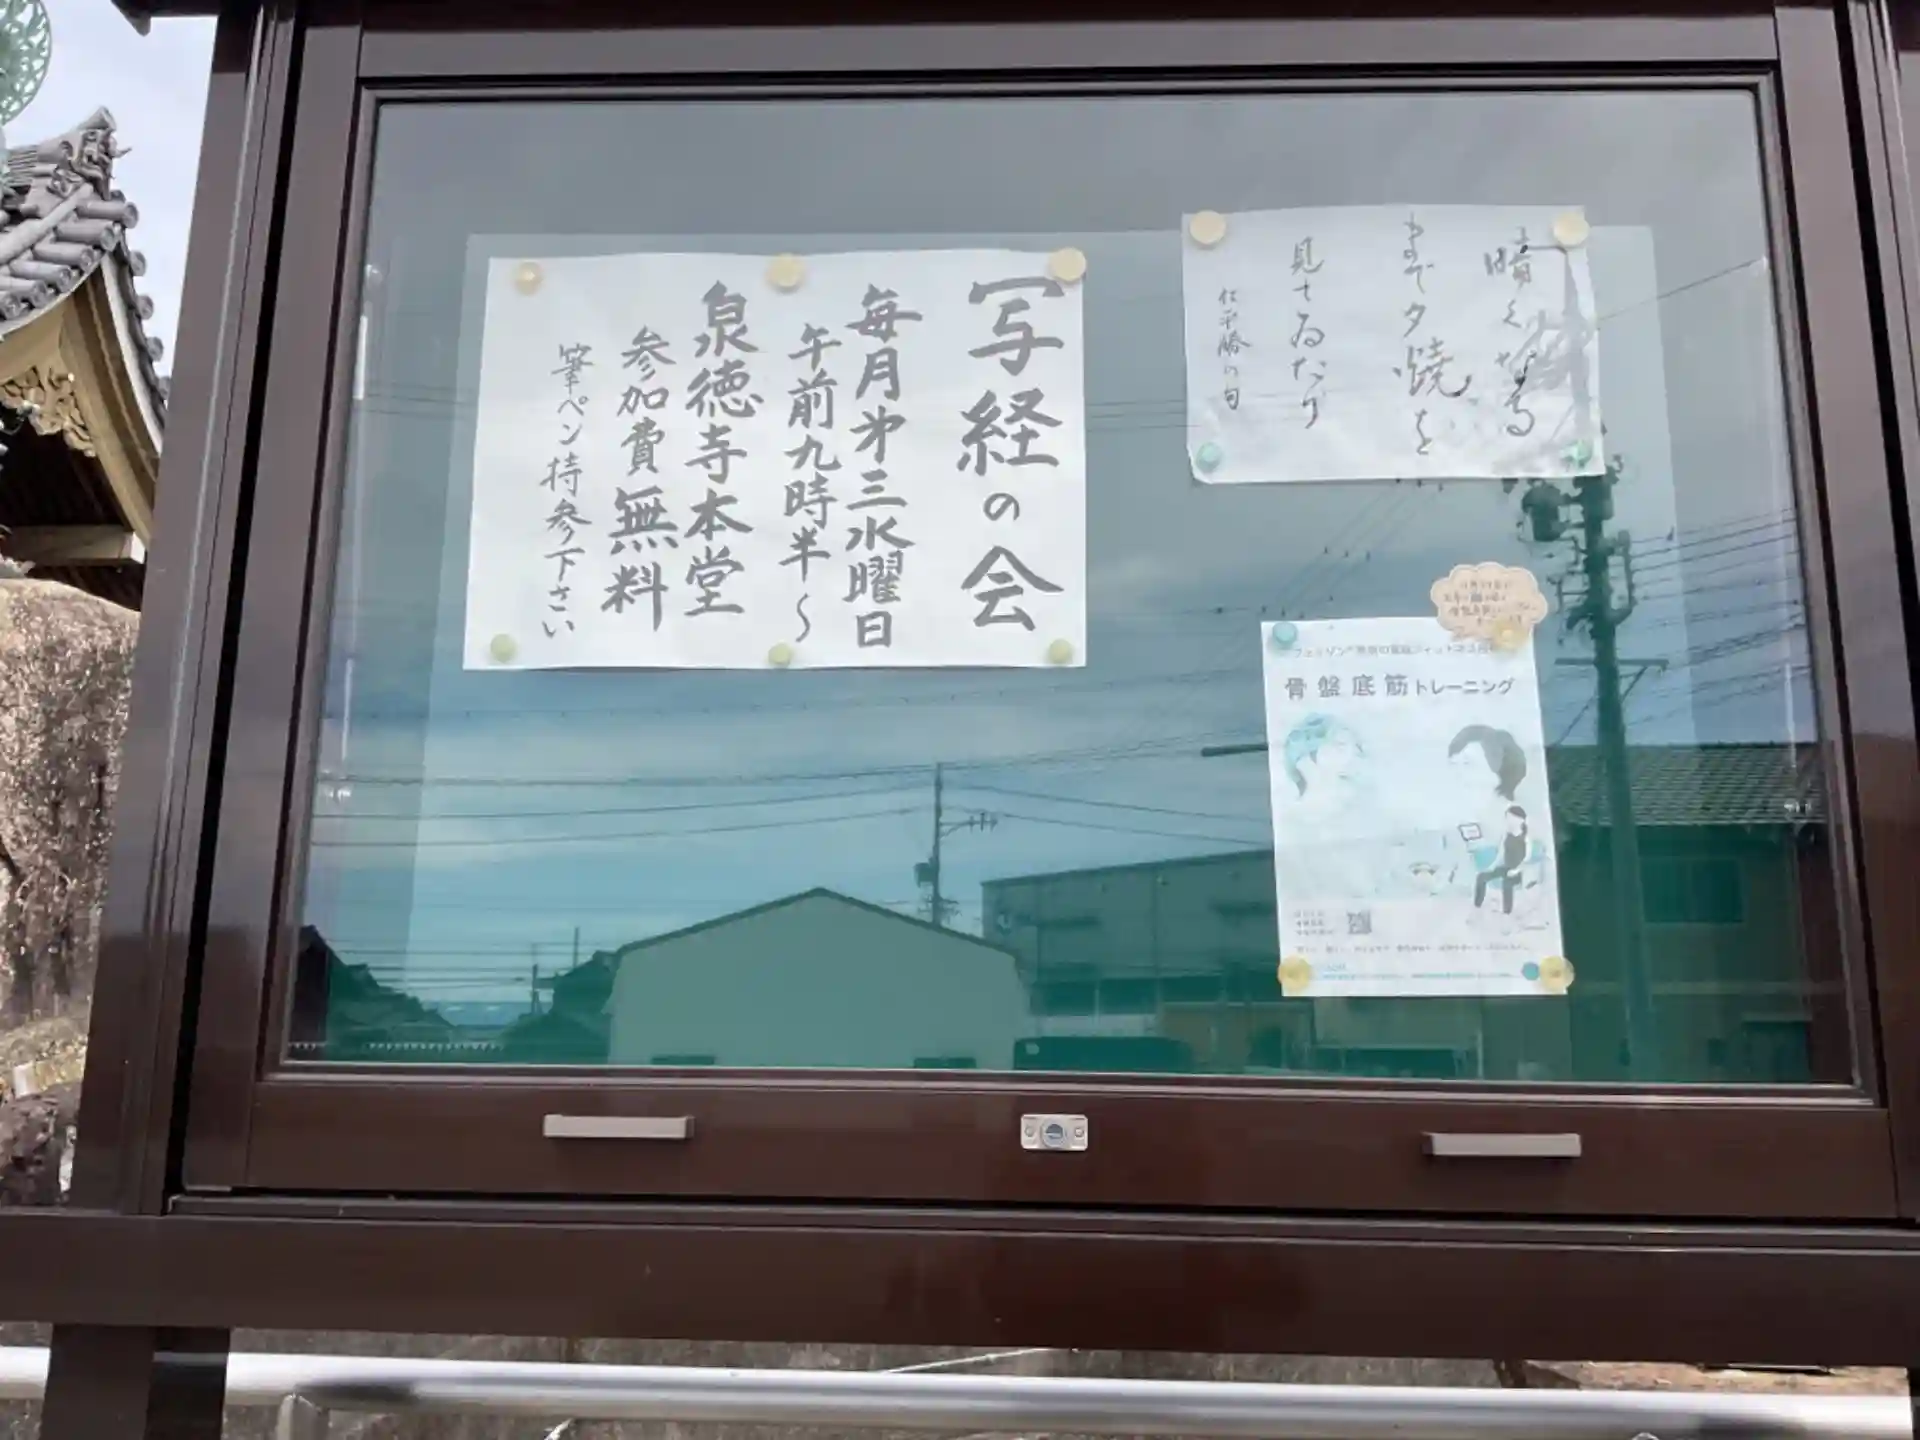 暗くなる
まで夕焼を
見てゐたり
仁平勝の句
写経の会
毎月第三水曜日
午前九時半〜
泉徳寺本堂
参加費無料
筆ペン持参下さい
骨盤底筋トレーニング